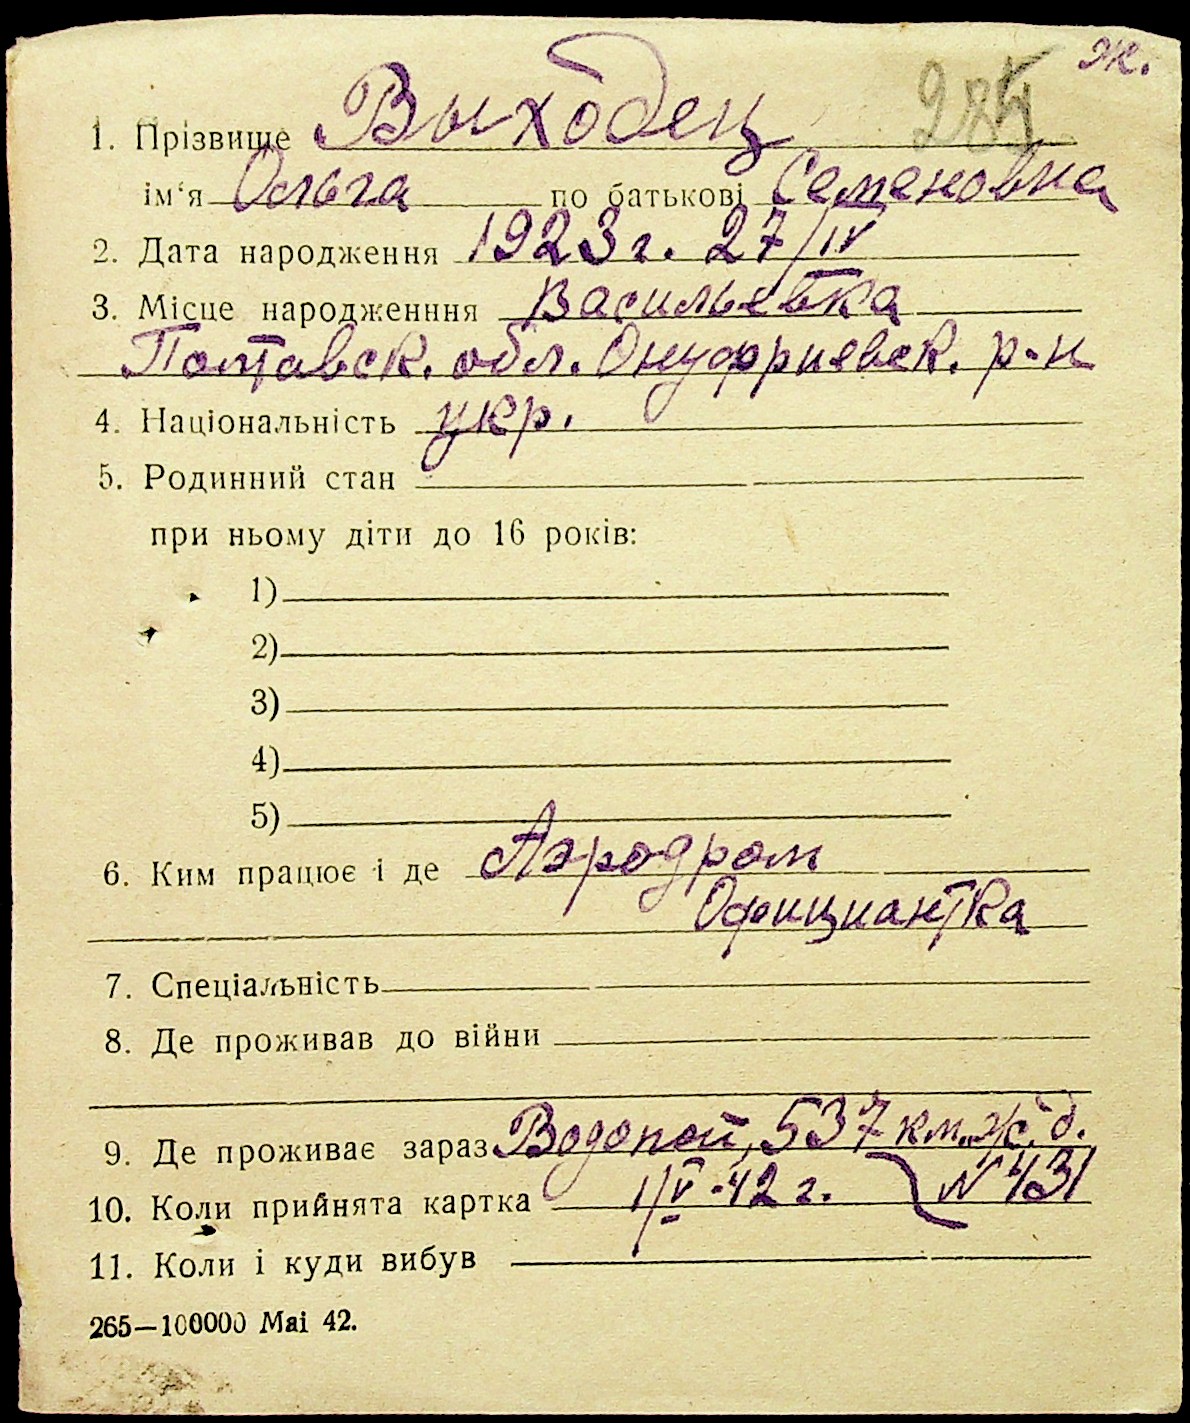 ж.
284
1. Прізвище Выходец
ім‘я Ольга по батькові Семеновна
2. Дата народження 1923 г. 27/IV
3. Місце народженння Васильевка
Полтавск. обл. Онуфриевск. р-н
4. Національність укр.
5. Родинний стан
при ньому діти до 16 років:
1)
2)
3)
4)
5)
6. Ким працює і де Аэродром
Официантка
7. Спеціальність
8. Де проживав до війни
9. Де проживає зараз Водопой, 537 км. ж. д.
10. Коли прийнята картка 1/V-42 г. № 431
11. Коли і куди вибув
265—100000 Маі 42.